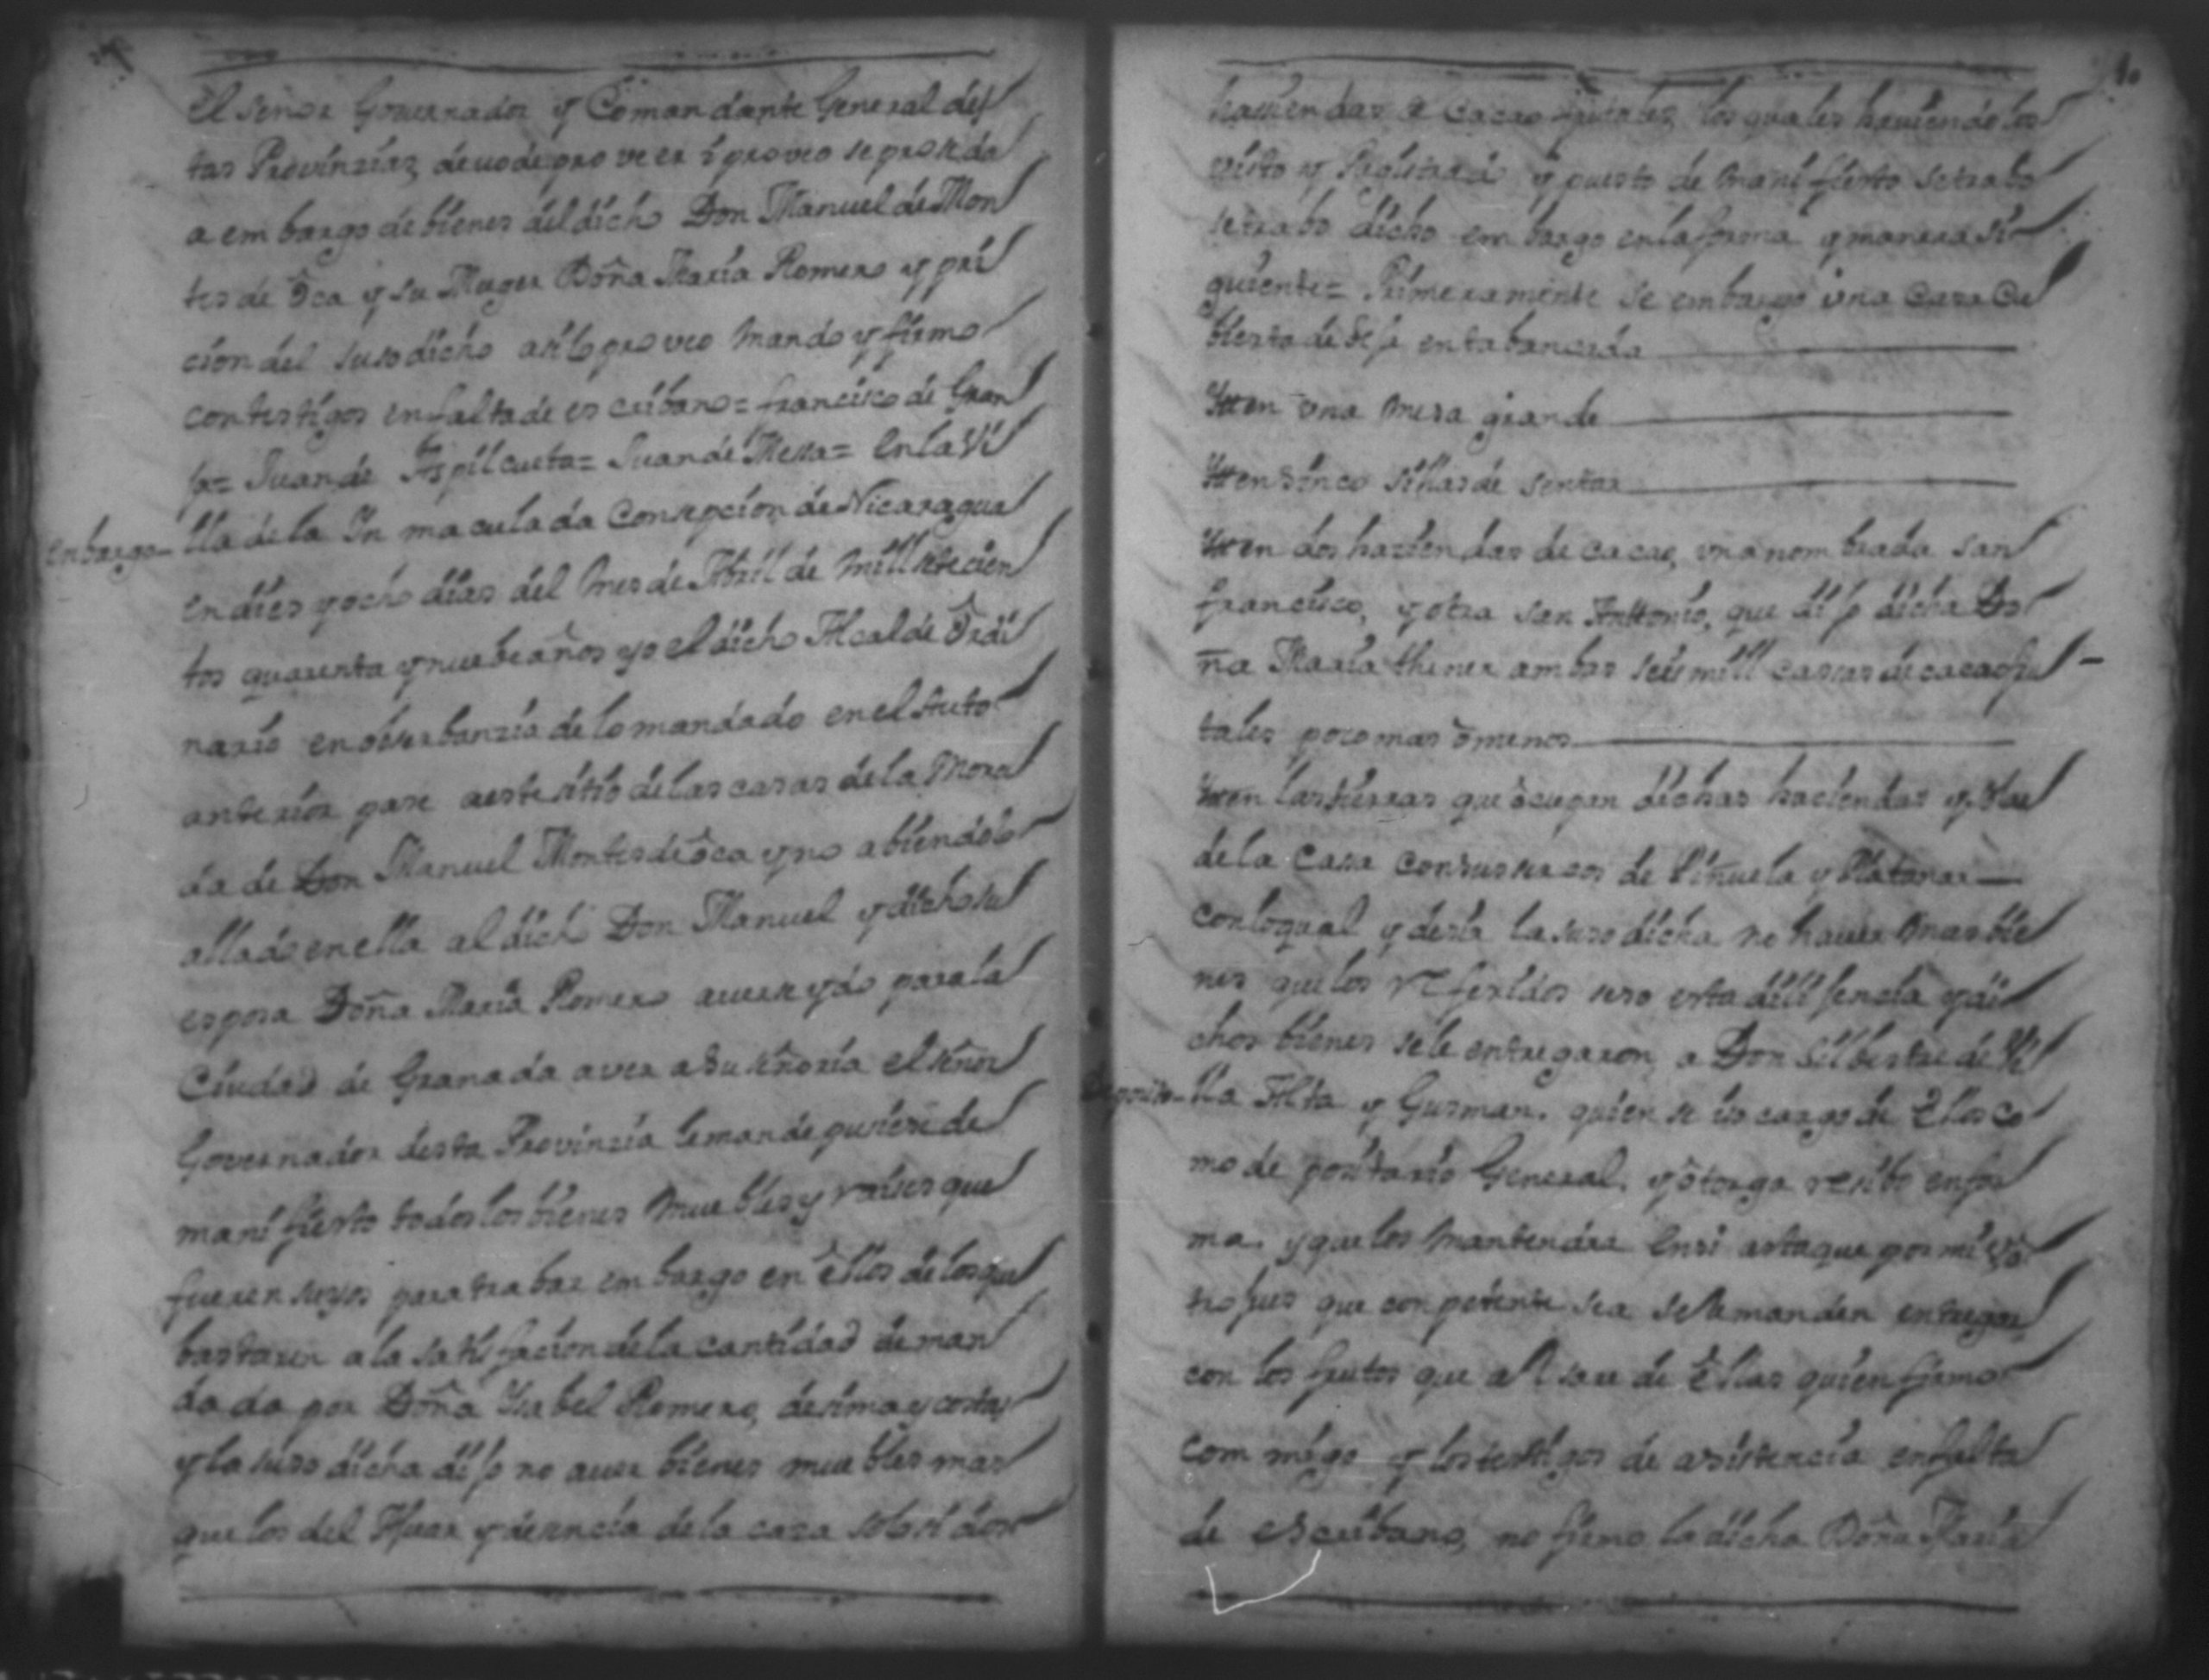 El señor Governador y Comandante General des
tas Provinzias, devo de proveer i proveo se proseda
a embargo de bienes del dicho Don Manuel de Mon
tes de Oca y su Muger Doña Maria Romero y pri
cion del suso dicho asi lo proveo mando y firmo
con testigos en falta de escribano = francisco de Gran
= Juan de Aspilcueta = Juan de Mesa = En la Vi
embargo lla de la Inmaculada Consepcion de Nicaragua
en dies y ocho dias del mes de Abril de mill setecien
tos quarenta y nuebe años yo el dicho Alcalde Ordi
nario en obserbanzia de lo mandado en el Auto
anterior pase a este sitio de las casas de la Mora
da de Don Manuel Montes de Oca y no abiendolo
allado en ella al dicho Don Manuel y dicho su
esposa Doña Maria Romero aver ydo para la
Ciudad de Granada a ver a Su señoria el señor
Governador desta Provinzia le mande pusiese de
manifiesto todos los bienes muebles y raises que
fueren suyos para trabar embargo en Ellos de los que
bastaren a la satisfacion de la cantidad deman
dada por Doña Ysabel Romero, desima y costas
y la suso dicha dijo no aver bienes muebles mas
que los del Ajuar y desencia de la casa solo si dos
haciendas de Cacao los quales haviendolos
visto y Registrado y puesto de manifiesto se trabo
se trabo dicho embargo en la forma y manera si
guiente = Primeramente se embargo una Casa Cu
bierta de teja entabancada
Yten una Mesa grande
Yten sinco sillas de sentar
Yten dos haziendas de cacao, una nombrada San
francisco, y otra san Anttonio, que dijo dicha Do
ña Maria thener ambas seis mill casas de cacao fru
tales poco mas o menos
Yten las tierras que ocupan dichas haciendas y solar
de la Casa con sus sercos de Piñuela y Platanar
con lo qual y desir la suso dicha no haver mas bie
nes que los referidos seso esta dilijencia y di
chos bienes se le entregaron a Don Silbestre de Vi
lla Alta y Gusman. quien se iso cargo de Ellos co
mo depositario General. y otorga resibo en for
ma. y que los mantendra en si asta que por mi u o
tro jues que conpetente sea se le manden entregar
con los frutos que alsare de Ellas quien firmo
commigo y los testigos de asistencia en falta
de escribano, no firmo la dicha Doña Maria